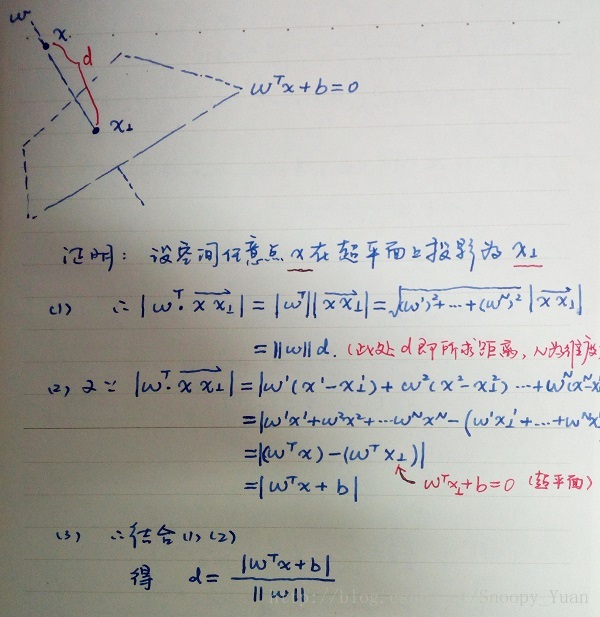 w
x
d
x⊥
wᵀx+b=0
证明: 设空间任意点 x 在超平面上投影为 x⊥
(1) ∵ |wᵀ· xx⊥| = |wᵀ||xx⊥| = √(w¹)²+…+(wᴺ)² |xx⊥|
= ||w|| d. (此处 d 即所求距离, N为维度
(2) 又∵ |wᵀ· xx⊥| = |w¹(x¹-x⊥¹) + w²(x²-x⊥²) …+wᴺ(xᴺ-x
= |w¹x¹+w²x²+…wᴺxᴺ-(w¹x⊥¹+…+wᴺx
= |(wᵀx)-(wᵀx⊥)|
= |wᵀx+b| wᵀx⊥+b=0 (超平面)
(3) ∴结合(1),(2)
得 d= |wᵀx+b| / ||w||
http://blog.csdn.net/Snoopy_Yuan